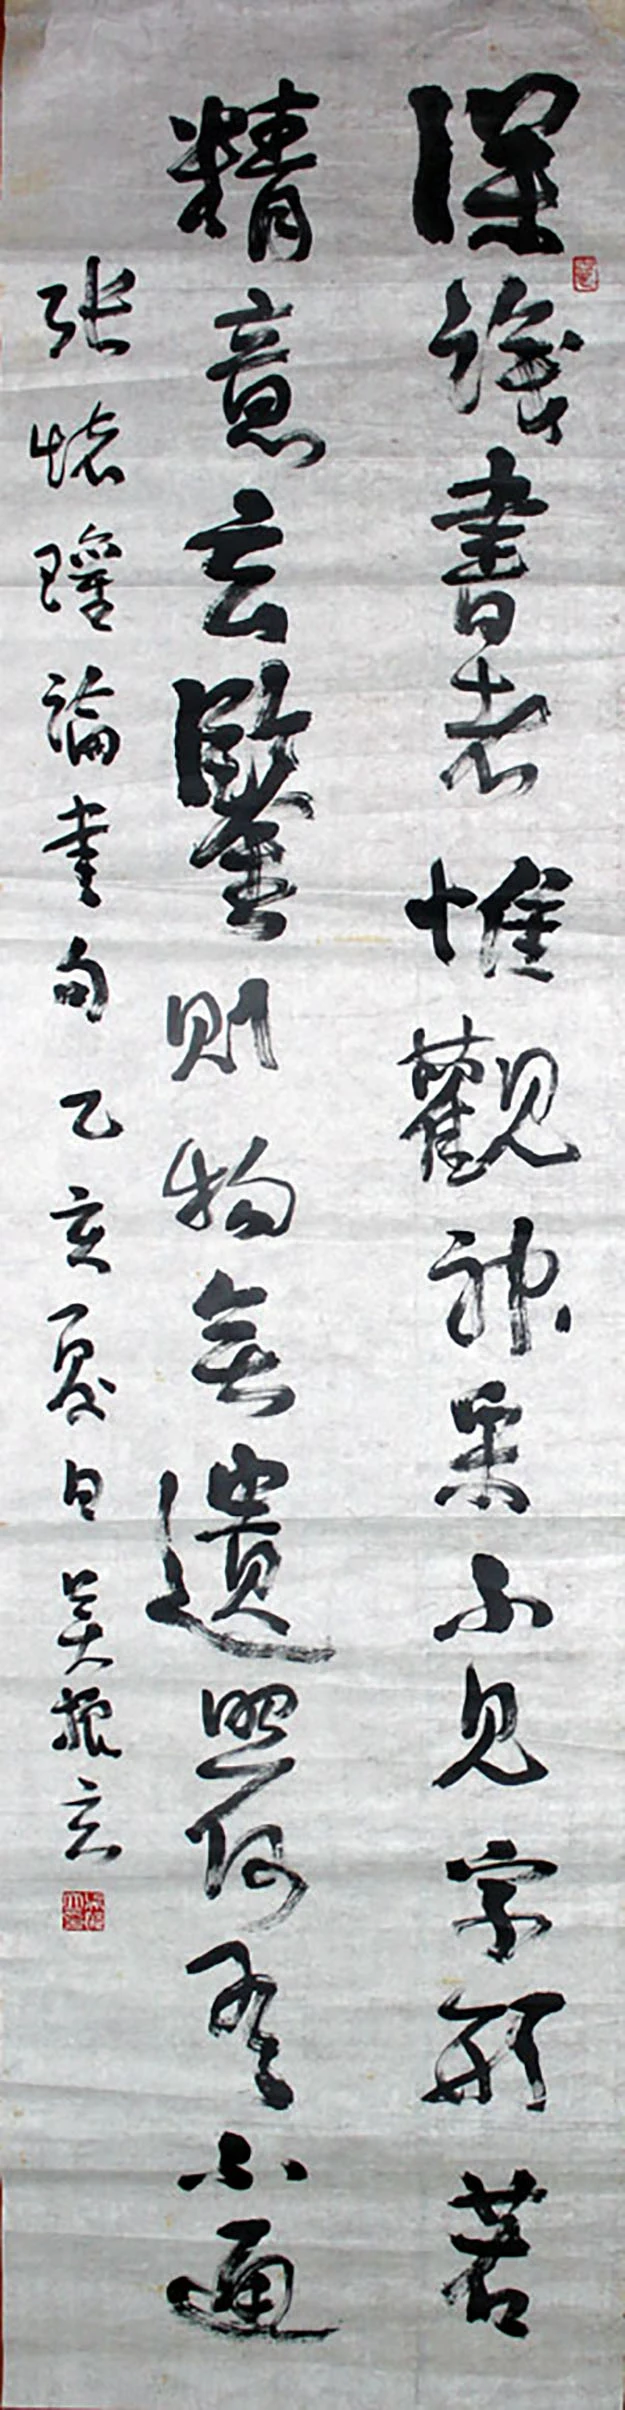 深識書者惟觀神采不見字形若
精意玄鑒則物無遺照何有不通
張懷瓘論書句乙亥夏日吳振立